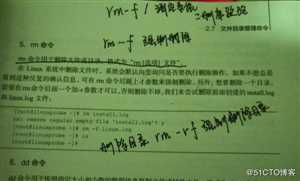 rm -f / 
2.7 文件目录管理命令
rm -f 强制删除
5. rm 命令
rm 命令用于删除文件或目录,格式为“rm [选项] 文件”。
在 Linux 系统中删除文件时,系统会默认向您询问是否要执行删除操作,如果不想总是
看到这种反复的确认信息,可在 rm 命令后跟上 -f 参数来强制删除。另外,想要删除一个目录,
需要在 rm 命令后面一个加 -r 参数才可以,否则删除不掉。我们来尝试删除前面创建的 install.log
和 linux.log 文件:
[root@linuxprobe ~]# rm install.log
rm: remove regular empty file 'install.log'? y
[root@linuxprobe ~]# rm -f linux.log
[root@linuxprobe ~]#
删除目录 rm -r -f 强制删除目录
6. dd 命令
@51CTO博客